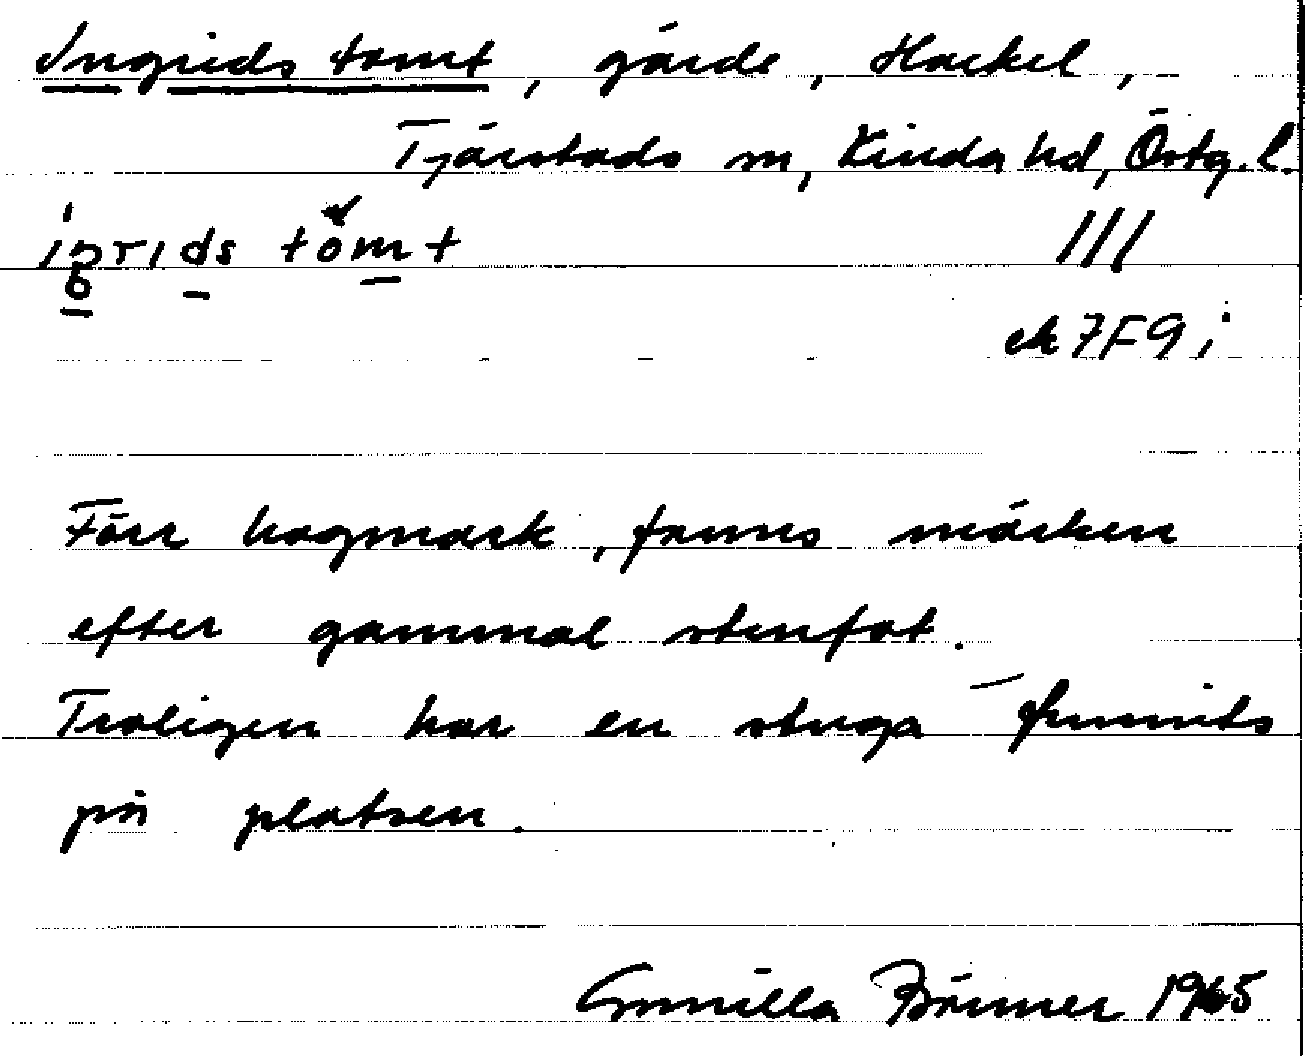 Ingrids tomt, gärde, Hackel,
Tjärstads sn, Kinda hd, Östg. l.
///
ek 7F9i
Förr hagmark, fanns märken
efter gammal stenfot.
Troligen har en stuga funnits
på platsen.
Gunilla Börner 1965